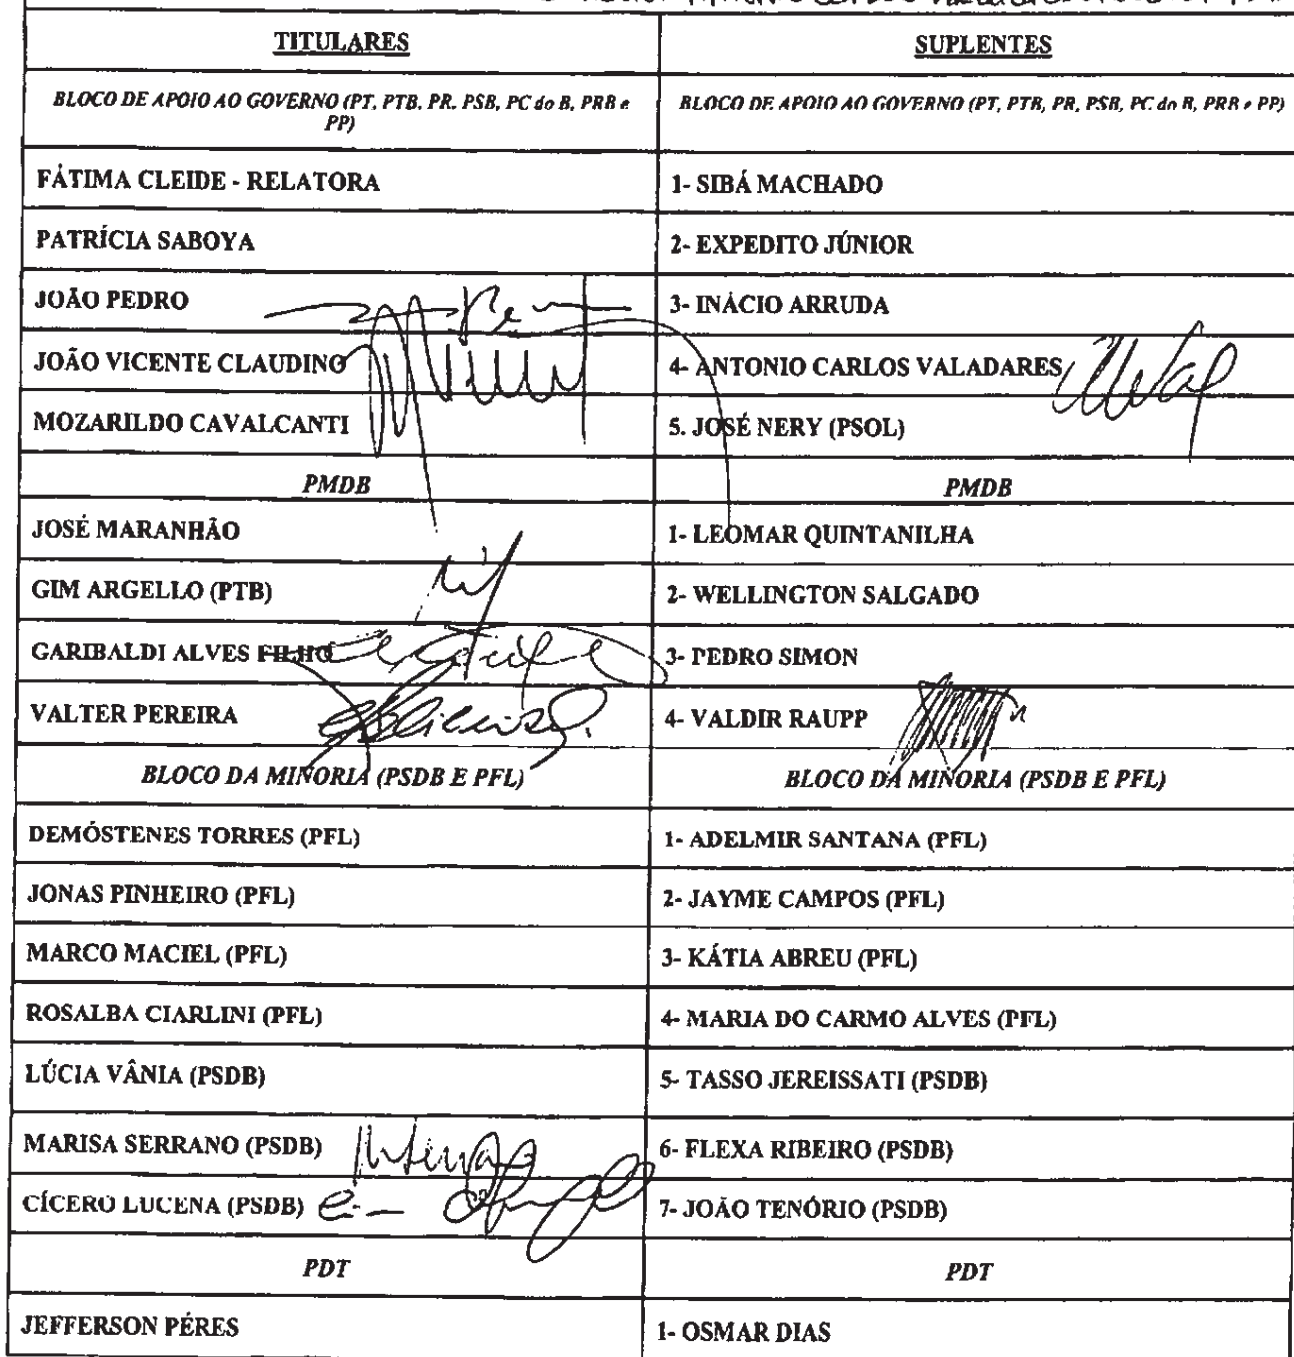 TITULARES
SUPLENTES
BLOCO DE APOIO AO GOVERNO (PT, PTB, PR, PSB, PC do B, PRB e
PP)
BLOCO DE APOIO AO GOVERNO (PT, PTB, PR, PSB, PC do B, PRB e PP)
FÁTIMA CLEIDE - RELATORA
1- SIBÁ MACHADO
PATRÍCIA SABOYA
2- EXPEDITO JÚNIOR
JOÃO PEDRO
3- INÁCIO ARRUDA
JOÃO VICENTE CLAUDINO
4- ANTONIO CARLOS VALADARES
MOZARILDO CAVALCANTI
5. JOSÉ NERY (PSOL)
PMDB
PMDB
JOSÉ MARANHÃO
1- LEOMAR QUINTANILHA
GIM ARGELLO (PTB)
2- WELLINGTON SALGADO
GARIBALDI ALVES FILHO
3- PEDRO SIMON
VALTER PEREIRA
4- VALDIR RAUPP
BLOCO DA MINORIA (PSDB E PFL)
BLOCO DA MINORIA (PSDB E PFL)
DEMÓSTENES TORRES (PFL)
1- ADELMIR SANTANA (PFL)
JONAS PINHEIRO (PFL)
2- JAYME CAMPOS (PFL)
MARCO MACIEL (PFL)
3- KÁTIA ABREU (PFL)
ROSALBA CIARLINI (PFL)
4- MARIA DO CARMO ALVES (PFL)
LÚCIA VÂNIA (PSDB)
5- TASSO JEREISSATI (PSDB)
MARISA SERRANO (PSDB)
6- FLEXA RIBEIRO (PSDB)
CÍCERO LUCENA (PSDB)
7- JOÃO TENÓRIO (PSDB)
PDT
PDT
JEFFERSON PÉRES
1- OSMAR DIAS